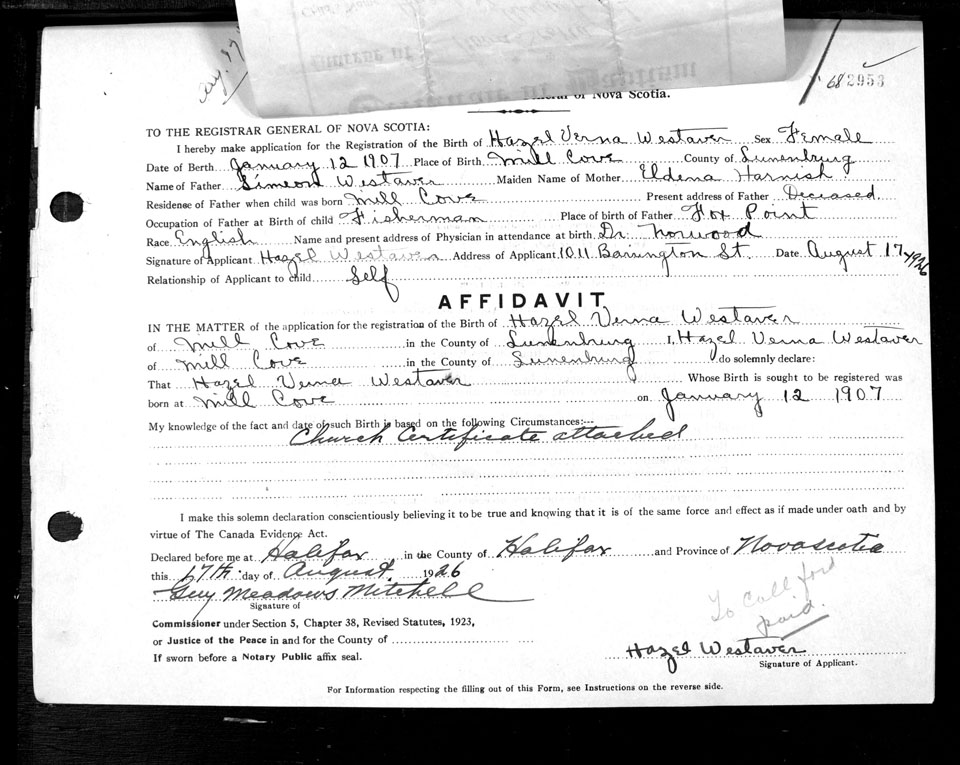 Aug. 17
68 2953
General of Nova Scotia.
TO THE REGISTRAR GENERAL OF NOVA SCOTIA:
I hereby make application for the Registration of the Birth of Hazel Verna Westaver Sex Female
Date of Berth January 12 1907 Place of Birth Mill Cove County of Lunenburg
Name of Father Simeon Westaver Maiden Name of Mother Eldena Harnish
Residense of Father when child was born Mill Cove Present address of Father Deceased
Occupation of Father at Birth of child Fisherman Place of birth of Father Fox Point
Race English Name and present address of Physician in attendance at birth Dr. Norwood
Signature of Applicant Hazel Westaver Address of Applicant 1011 Barrington St. Date August 17 1926
Relationship of Applicant to child Self
AFFIDAVIT
IN THE MATTER of the application for the registration of the Birth of Hazel Verna Westaver
of Mill Cove in the County of Lunenburg I, Hazel Verna Westaver
of Mill Cove in the County of Lunenburg do solemnly declare:
That Hazel Verna Westaver Whose Birth is sought to be registered was
born at Mill Cove on January 12 1907
My knowledge of the fact and date of such Birth is based on the following Circumstances:---
Church Certificate attached
I make this solemn declaration conscientiously believing it to be true and knowing that it is of the same force and effect as if made under oath and by
virtue of The Canada Evidence Act.
Declared before me at Halifax in the County of Halifax and Province of Novascotia
this 17th day of August 1926
Guy Meadows Mitchell
Signature of
Commissioner under Section 5, Chapter 38, Revised Statutes, 1923,
or Justice of the Peace in and for the County of
If sworn before a Notary Public affix seal.
To Call for
paid.
Hazel Westaver
Signature of Applicant.
For Information respecting the filling out of this Form, see Instructions on the reverse side.